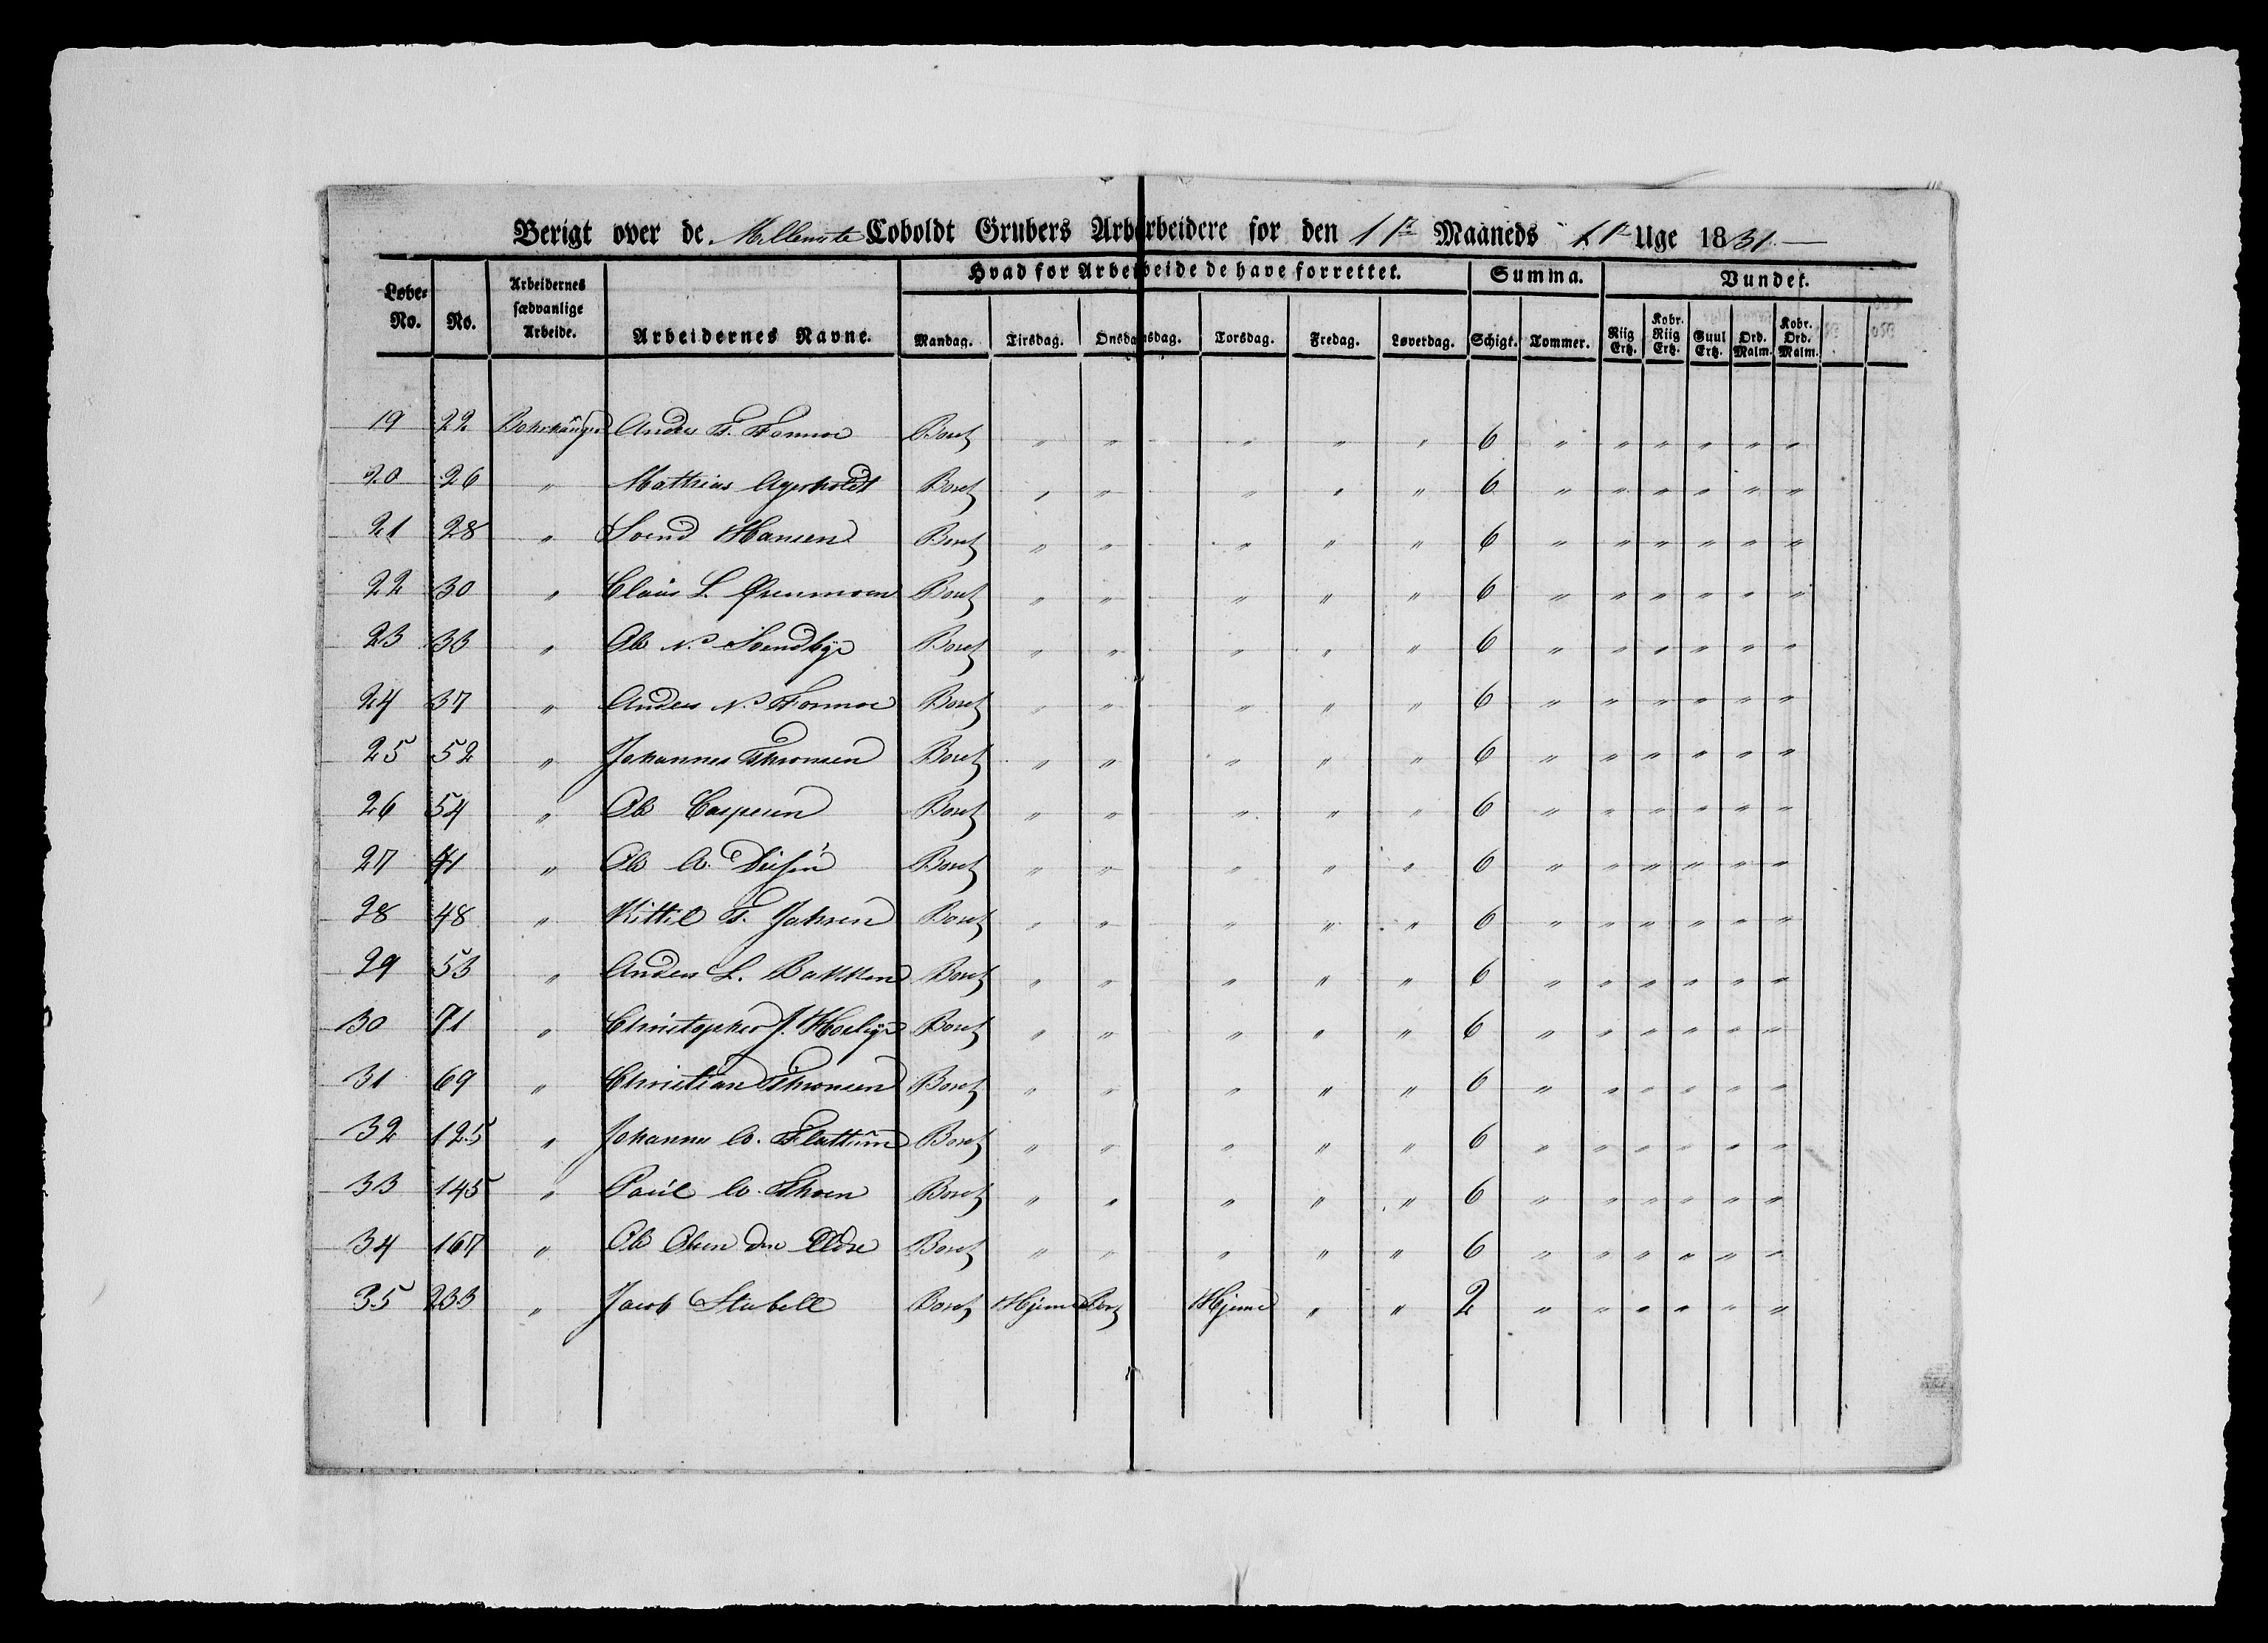 Berigt over de Mellemste Coboldt Grubers Arbeidere for den 1ste Maaneds 1ste Uge 1831
Løbe-No. No. Arbeidernes sædvanlige Arbeide. Arbeidernes Navne. Hvad for Arbeide de have forrettet. Summa. Vundet.
Mandag. Tirsdag. Onsdag. Torsdag. Fredag. Løverdag. Schigt. Tommer. Riig Ertz. Kobr. Riig Ertz. Guul Ertz. Ord. Malm. Kobr. Ord. Malm.
19 22 Anders T. Formoe Boret " " " " " 6 " " " " " "
20 26 " Mathias Agerholdt Boret " " " " " 6 " " " " " "
21 28 " Svend Hansen Boret " " " " " 6 " " " " " "
22 30 " Claus L. Boret " " " " " 6 " " " " " "
23 33 " Ole N. Svendbye Boret " " " " " 6 " " " " " "
24 37 " Anders N. Formoe Boret " " " " " 6 " " " " " "
25 52 " Johannes Thronsen Boret " " " " " 6 " " " " " "
26 54 " Ole Caspersen Boret " " " " " 6 " " " " " "
27 41 " Ole A. Boret " " " " " 6 " " " " " "
28 48 " Kittil T. Jahren Boret " " " " " 6 " " " " " "
29 53 " Anders L. Bakken Boret " " " " " 6 " " " " " "
30 71 " Christopher J. Boret " " " " " 6 " " " " " "
31 69 " Christian Thronsen Boret " " " " " 6 " " " " " "
32 125 " Johannes A. Flattum Boret " " " " " 6 " " " " " "
33 145 " Paul A. Boret " " " " " 6 " " " " " "
34 167 " Ole Olsen den Eldre Boret " " " " " 6 " " " " " "
35 233 " Jacob Stubell Boret Hjeme Boret Hjeme " " 2 " " " " " "